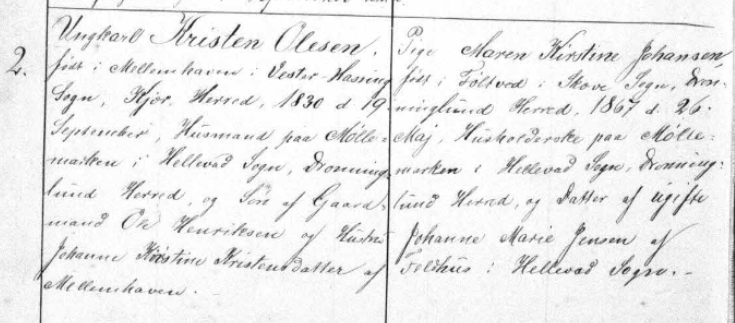 2.
Ungkarl Kristen Olesen,
født i Mellemhaven i Vester-Hassing
Sogn, Kjær Herred, 1830 d 19
September, Husmand paa Mølle-
marken i Hellevad Sogn, Dronning-
lund Herred, og Søn af Gaard-
mand Ole Henriksen og Hustru
Johanne Kirstine Kristensdatter af
Mellemhaven.
Pige Maren Kirstine Johansen,
født i Toltved i Skove Sogn, Dron-
ninglund Herred, 1867 d. 26.
Maj, Husholderske paa Mølle-
marken i Hellevad Sogn, Dronning-
lund Herred, og Datter af ugifte
Johanne Marie Jensen af
Foldhus i Hellevad Sogn.